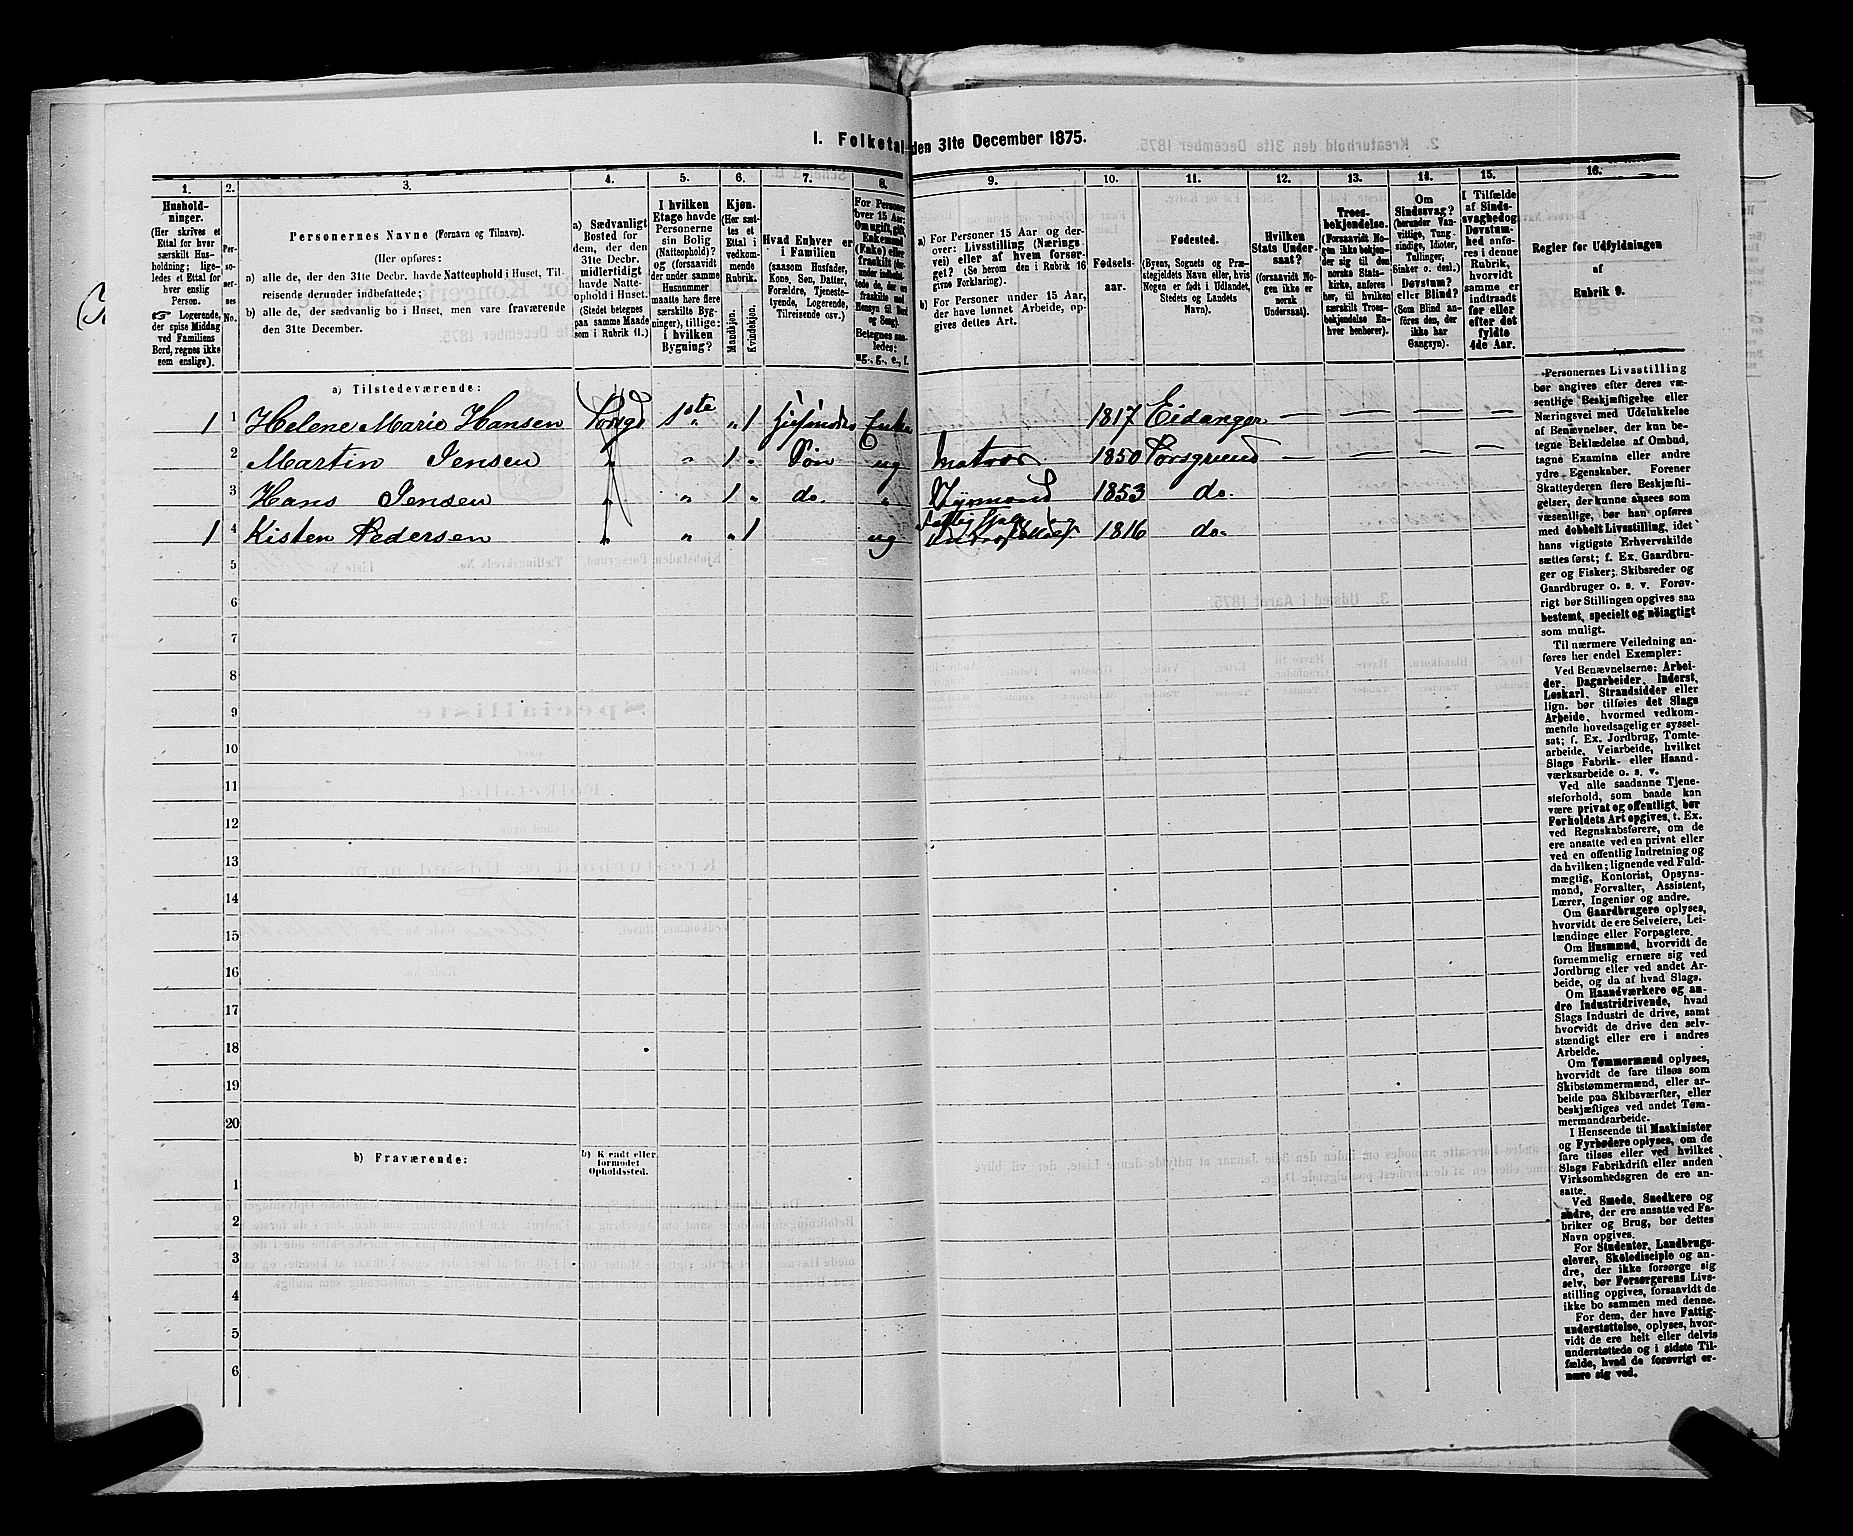 1. Folketal den 31te December 1875.
1. 2. 3. 4. 5. 6. 7. 8. 9. 10. 11. 12. 13. 14. 15. 16.
Hushold-
ninger.
(Her skrives et
Ettal for hver
særskilt Hus-
holdning; lige-
ledes et Ettal for
hver enslig
Person.
☞ Logerende,
der spise Middag
ved Familiens
Bord, regnes ikke
som enslige).
Per-
so-
ner-
nes
No.
Personernes Navne (Fornavn og Tilnavn).
(Her opføres:
a) alle de, der den 31te Decbr. havde Natteophold i Huset, Til-
reisende derunder indbefattede;
b) alle de, der sædvanlig bo i Huset, men vare fraværende
den 31te December.
a) Sædvanligt
Bosted for
dem, der den
31te Decbr.
midlertidigt
havde Natte-
ophold i Huset.
(Stedet betegnes
paa samme Maade
som i Rubrik 11.)
I hvilken
Etage havde
Personerne
sin Bolig
(Natteophold)?
og (forsaavidt
der under samme
Husnummer
maatte høre flere
særskilte Byg-
ninger), tillige:
i hvilken
Bygning?
Kjøn.
(Her sæt-
tes et
Ettal i
vedkom-
mende
Rubrik.
Mandkjøn.
Kvindekjøn.
Hvad Enhver er
i Familien
(saasom Husfader,
Kone, Søn, Datter,
Forældre, Tjeneste-
tyende, Logerende,
Tilreisende osv.)
For Personer
over 15 Aar:
Om ugift, gift,
Enkemand
(Enke) eller
fraskilt
Betegnes saa-
ledes:
ug., g., e., f.
a) For Personer 15 Aar og der-
over: Livsstilling (Nærings-
vei) eller af hvem forsør-
get? (Se herom den i Rubrik 16
givne Forklaring).
b) For Personer under 15 Aar,
der have lønnet Arbeide, op-
gives dettes Art.
Fødsels-
aar.
Fødested.
(Byens, Sognets og Præ-
stegjeldets Navn eller, hvis
Nogen er født i Udlandet,
Stedets og Landets
Navn).
Hvilken
Stats Under-
saat?
(forsaavidt No-
gen ikke er
norsk
Undersaat).
Troes-
bekjendelse.
(Forsaavidt No-
gen ikke bekjen-
der sig til den
norske Stats-
kirke, anføres
her, til hvilken
særskilt Troes-
bekjendelse En-
hver henhører).
Om
Sindssvag?
(herunder Van-
vittige, Tung-
sindige, Idioter,
Tullinger,
Sinker o. desl.)
Døvstum?
eller Blind?
(Som Blind an-
føres den, der
ikke har
Gangsyn).
I Tilfælde
af Sinds-
svaghed og
Døvstum-
hed anfø-
res i denne
Rubrik,
hvorvidt
samme er
indtraadt
før eller
efter det
fyldte
4de Aar.
Regler for Udfyldningen
af
Rubrik 9.
a) Tilstedeværende:
1 1 Helene Marie Hansen Porsgd 1ste „ 1 Husmoder Enke 1817 Eidanger — — — —
2 Martin Jensen „ „ 1 „ Søn ug Matros 1850 Porsgrund — — — —
3 Hans Jensen „ „ 1 „ do. „ Styrmand 1853 do.
1 4 Kisten Pedersen „ „ „ 1 ug 1816 do.
5
6
7
8
9
10
11
12
13
14
15
16
17
18
19
20
b) Fraværende:
b) Kjendt eller
formodet
Opholdssted.
1
2
3
4
5
6
Personernes Livsstilling
bør angives efter deres væ-
sentlige Beskjæftigelse eller
Næringsvei med Udelukkelse
af Benævnelser, der kun be-
tegne Beklædelse af Ombud,
tagne Examina eller andre
ydre Egenskaber. Forener
Skatteyderen flere Beskjæfti-
gelser, der kunne ansees som
væsentlige, bør han opføres
med dobbelt Livsstilling, idet
hans vigtigste Erhvervskilde
sættes først; f. Ex. Gaardbru-
ger og Fisker; Skibsreder og
Gaardbruger o. s. v. Forøv-
rigt bør Stillingen opgives saa
bestemt, specielt og nøiagtigt
som muligt.
Til nærmere Veiledning an-
føres her endel Exempler:
Ved Benævnelserne: Arbei-
der, Dagarbeider, Inderst,
Løskarl, Strandsidder eller
lign. bør tilføies det Slags
Arbeide, hvormed vedkom-
mende hovedsagelig er syssel-
sat; f. Ex. Jordbrug, Tomte-
arbeide, Veiarbeide, hvilket
Slags Fabrik- eller Haand-
værksarbeide o. s. v.
Ved alle saadanne Tjene-
steforhold, som baade kan
være privat og offentligt, bør
Forholdets Art opgives, t. Ex.
ved Regnskabsførere, om de
ere ansatte ved en privat eller
ved en offentlig Indretning og
da hvilken; lignende ved Fuld-
mægtig, Kontorist, Opsyns-
mand, Forvalter, Assistent,
Lærer, Ingeniør og andre.
Om Gaardbrugere oplyses,
hvorvidt de ere Selveiere, Lei-
lændinge eller Forpagtere.
Om Husmænd, hvorvidt de
fornemmelig ernære sig ved
Jordbrug eller ved andet Ar-
beide, og da af hvad Slags.
Om Haandværkere og an-
dre Industridrivende, hvad
Slags Industri de drive, samt
hvorvidt de drive den selv-
stændigt eller ere i andres
Arbeide.
Om Tømmermænd oplyses,
hvorvidt de fare tilsøs som
Skibstømmermænd, eller ar-
beide paa Skibsværfter, eller
beskjæftiges ved andet Tøm-
mermandsarbeide.
I Henseende til Maskinister
og Fyrbødere oplyses, om de
fare tilsøs eller ved hvilket
Slags Fabrikdrift eller anden
Virksomhedsgren de ere an-
satte.
Ved Smede, Snedkere og
andre, der ere ansatte ved Fa-
briker og Brug, bør dettes
Navn opgives.
For Studenter, Landbrugs-
elever, Skoledisciple og an-
dre, der ikke forsørge sig
selv, bør Forsørgerens Livs-
stilling opgives, forsaavidt de
ikke bo sammen med denne.
For dem, der have Fattig-
understøttelse, oplyses, hvor-
vidt de ere helt eller delvis
understøttede og i sidste Til-
fælde, hvad de forøvrigt er-
nære sig ved.